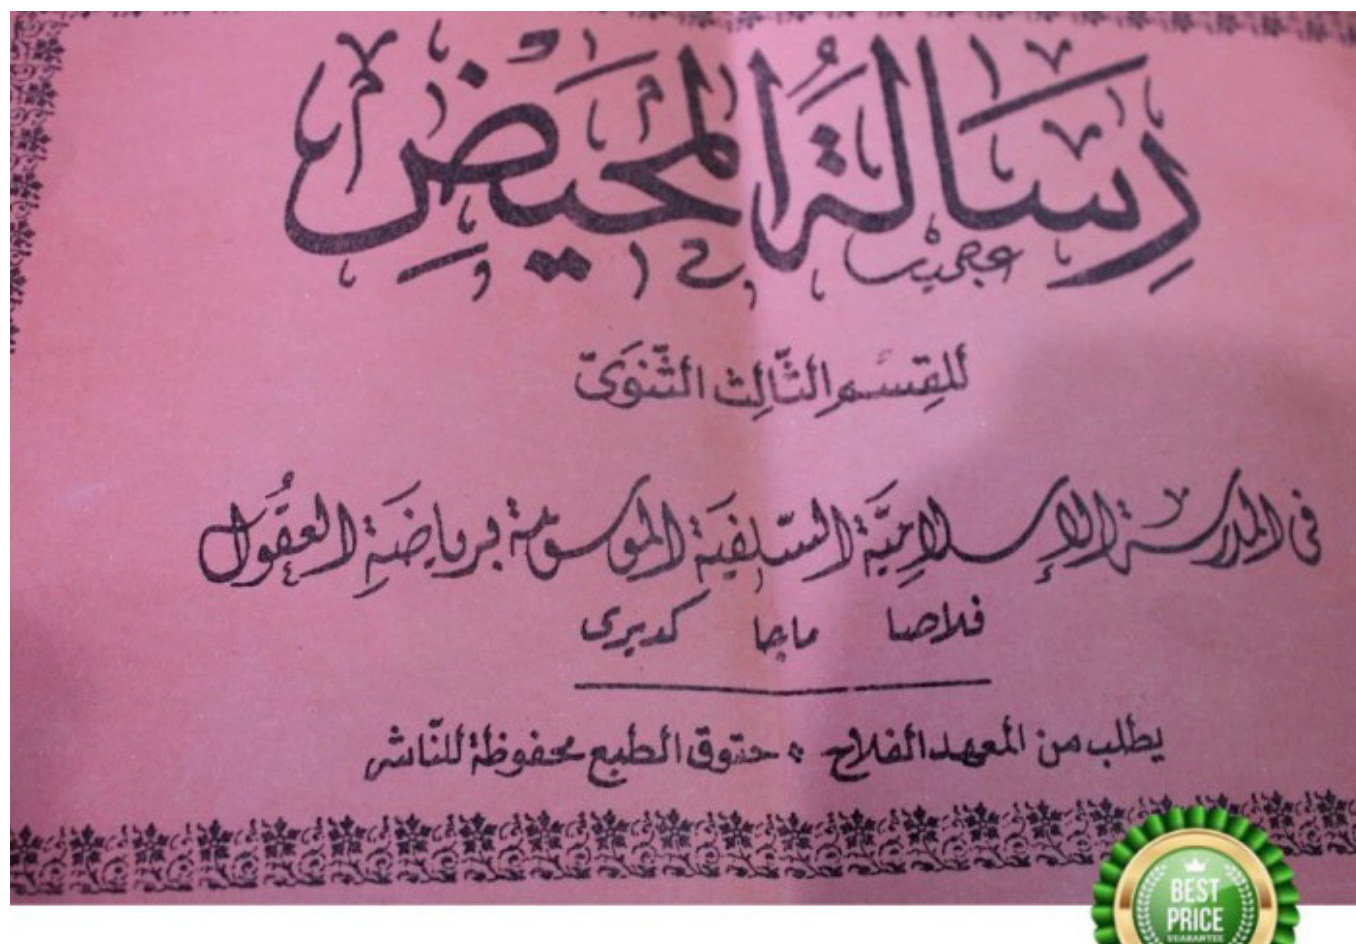 رِسَالَةُ الْمَحَيْضِ
للقِسْمِ الثَّالِث الثَّنَوِىّ
فى المدرسة الإسلامِيَّة السَّلفِيَة الموسومة برياضَةِ العقُول
فلاصا ماجا كديرى
يطلب من المعهد الفلاح * حقوق الطبع محفوظة للنّاشر
BEST
PRICE
GUARANTEE